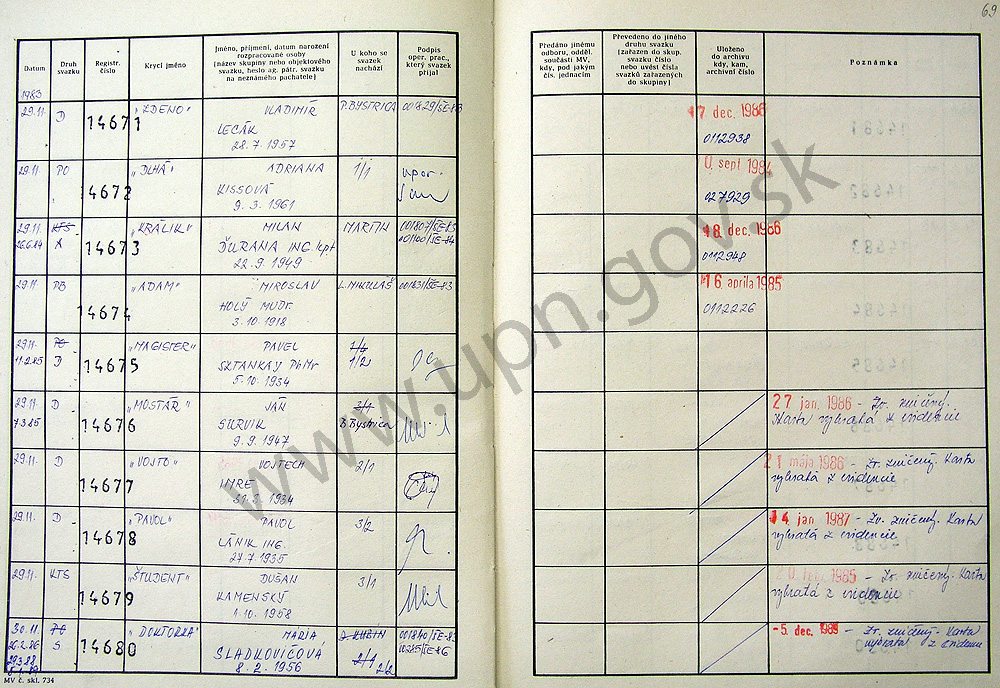 69
Datum
Druh svazku
Registr. číslo
Krycí jméno
Jméno, příjmení, datum narození rozpracované osoby (název skupiny nebo objektového svazku, heslo ag. pátr. svazku na neznámého pachatele)
U koho se svazek nachází
Podpis oper. prac., který svazek přijal
Předáno jinému odboru, odděl. součásti MV, kdy, pod jakým čís. jednacím
Převedeno do jiného druhu svazku (zařazen do skup. svazku číslo nebo uvést čísla svazků zařazených do skupiny)
Uloženo do archivu kdy, kam, archivní číslo
Poznámka
1983
29.11. D 14671 "ZDENO" VLADIMÍR P. BYSTRICA 001829/ŠE-83
LECÁK
28.7.1957
17 dec. 1986
0112938
29.11. PO 14672 "DLHÁ" ADRIANA 1/1
KISSOVÁ
9.3.1961
sept 1984
027929
29.11. KTS 14673 "KRÁLIK" MILAN MARTIN 001807/ŠE-83
26.6.84 A ĎURANA ING. kpt 001100/ŠE-84
22.9.1949
18 dec. 1986
0112948
29.11. PB 14674 "ADAM" MIROSLAV L. MIKULÁŠ 001831/ŠE-83
HOLÝ MUDr.
3.10.1918
16 aprila 1985
0112226
29.11. PO 14675 "MAGISTER" PAVEL 1/4
11.2.85 D SKTANKAY PhMr 1/2
5.10.1934
29.11. D 14676 "MOSTÁR" JÁN 3/1
7.3.85 SURVIK B. Bystrica
9.9.1947
27 jan. 1986 - Zv. zničený.
Karta vybratá z evidencie
29.11. D 14677 "VOJTO" VOJTECH 2/1
IMRE
1934
21 mája 1986 - Zv. zničený. Karta
vybratá z evidencie
29.11. D 14678 "PAVOL" PAVOL 3/2
LÁNIK ING.
27.7.1935
14 jan. 1987 - Zv. zničený. Karta
vybratá z evidencie
29.11. KTS 14679 "ŠTUDENT" DUŠAN 3/1
KAMENSKÝ
1.10.1958
1985 - Zv. zničený. Karta
vybratá z evidencie
30.11. PO 14680 "DOKTORKA" MÁRIA D. KUBÍN 001840/ŠE-83
26.2.86 S SLADKOVIČOVÁ 2/1 00285/ŠE-86
8.2.1956 2/2
-5. dec. 1989 - Zv. zničený. Karta
vybratá z evidencie
MV č. skl. 734
www.upn.gov.sk